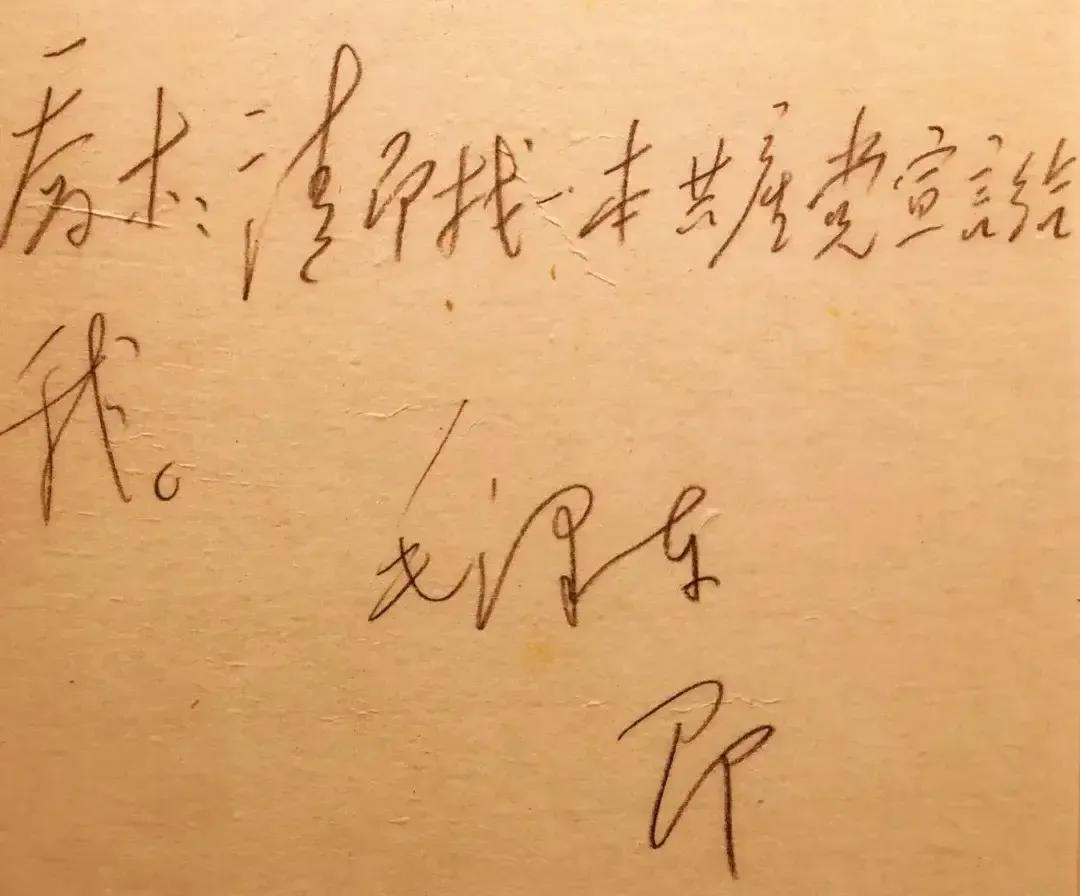 喬木：請即找一本共產党宣言給
我。
毛澤東
即